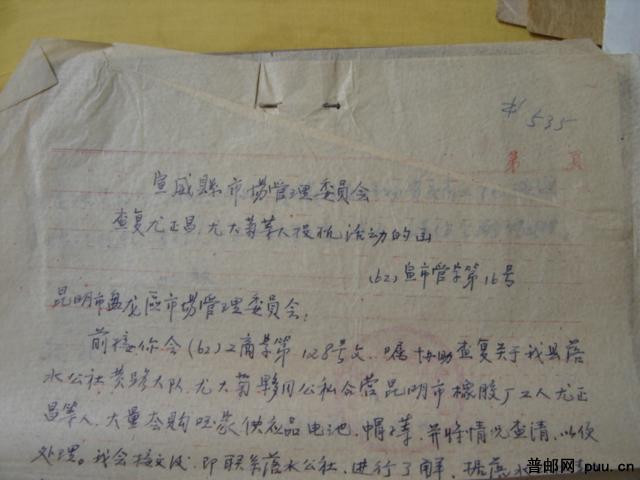 材535
第 页
宣威县市场管理委员会
查复尤正昌、尤大菊等人投机活动的函
(62)宣市管字第16号
昆明市盘龙区市场管理委员会:
前接你会(62)工商字第128号文,嘱协助查复关于我县落
水公社 大队,尤大菊 同公私合营昆明市橡胶厂工人尤正
昌等人,大量套购 供应品电池、帽 等,并将情况查清,以便
处理。我会接文后,即联系落水公社,进行了解,据落水
普邮网 puu.cn